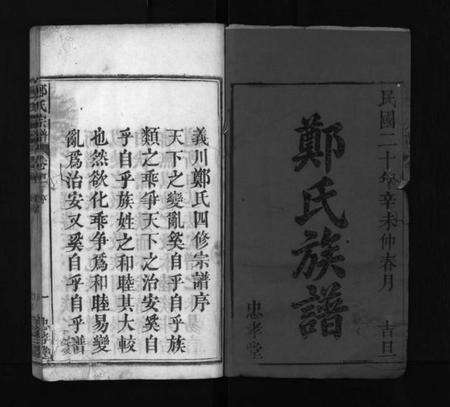 民國二十年辛未仲春月　吉日
鄭氏族譜
忠孝堂
義川鄭氏四修宗譜序
天下之變亂奚自乎自乎族
類之乖爭天下之治安奚自
乎自乎族姓之和睦其大較
也然欲化乖爭為和睦易變
亂爲治安又奚自乎自乎譜
鄭氏宗譜